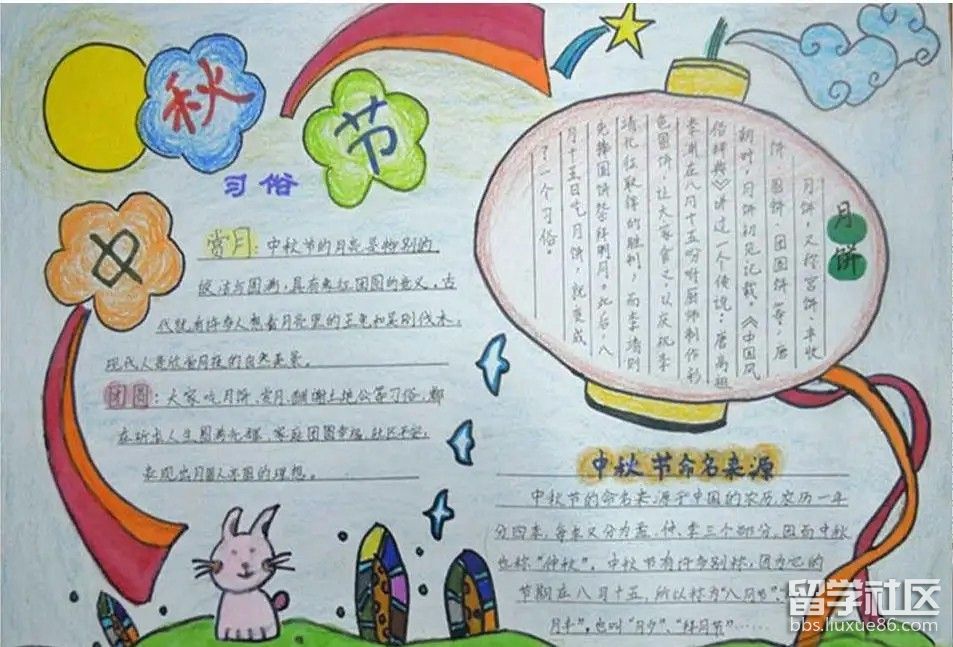 中
秋
节
习俗
赏月：中秋节的月亮是特别的
皎洁与圆满，具有象征团圆的意义，古
代就有许多人想看月亮里的玉兔和吴刚伐木，
现代人喜欢赏月夜的自然美景。
团圆：大家吃月饼、赏月、酬谢土地公等习俗，都
在祈求人生圆满光辉、家庭团圆幸福、社区平安，
表现出月圆人亦圆的理想。
月饼
月饼，又称宫饼、丰收
饼、圆饼、团圆饼等，唐
朝时，月饼初见记载。《中国风
俗辞典》讲过一个传说：唐高祖
李渊在八月十五吩咐厨师制作彩
色圆饼，让大家食之，以庆祝李
靖北征取得的胜利，而李靖则
先捧圆饼祭拜明月。此后，八
月十五日吃月饼，就变成
了一个习俗。
中秋节命名来源
中秋节的命名来源于中国的农历，农历一年
分四季，每季又分为孟、仲、季三个部分，因而中秋
也称“仲秋”。中秋节有许多别称，因为它的
节期在八月十五，所以称为“八月节”、
月半”，也叫“月夕”、“拜月节”……
留学社区
bbs.liuxue86.com